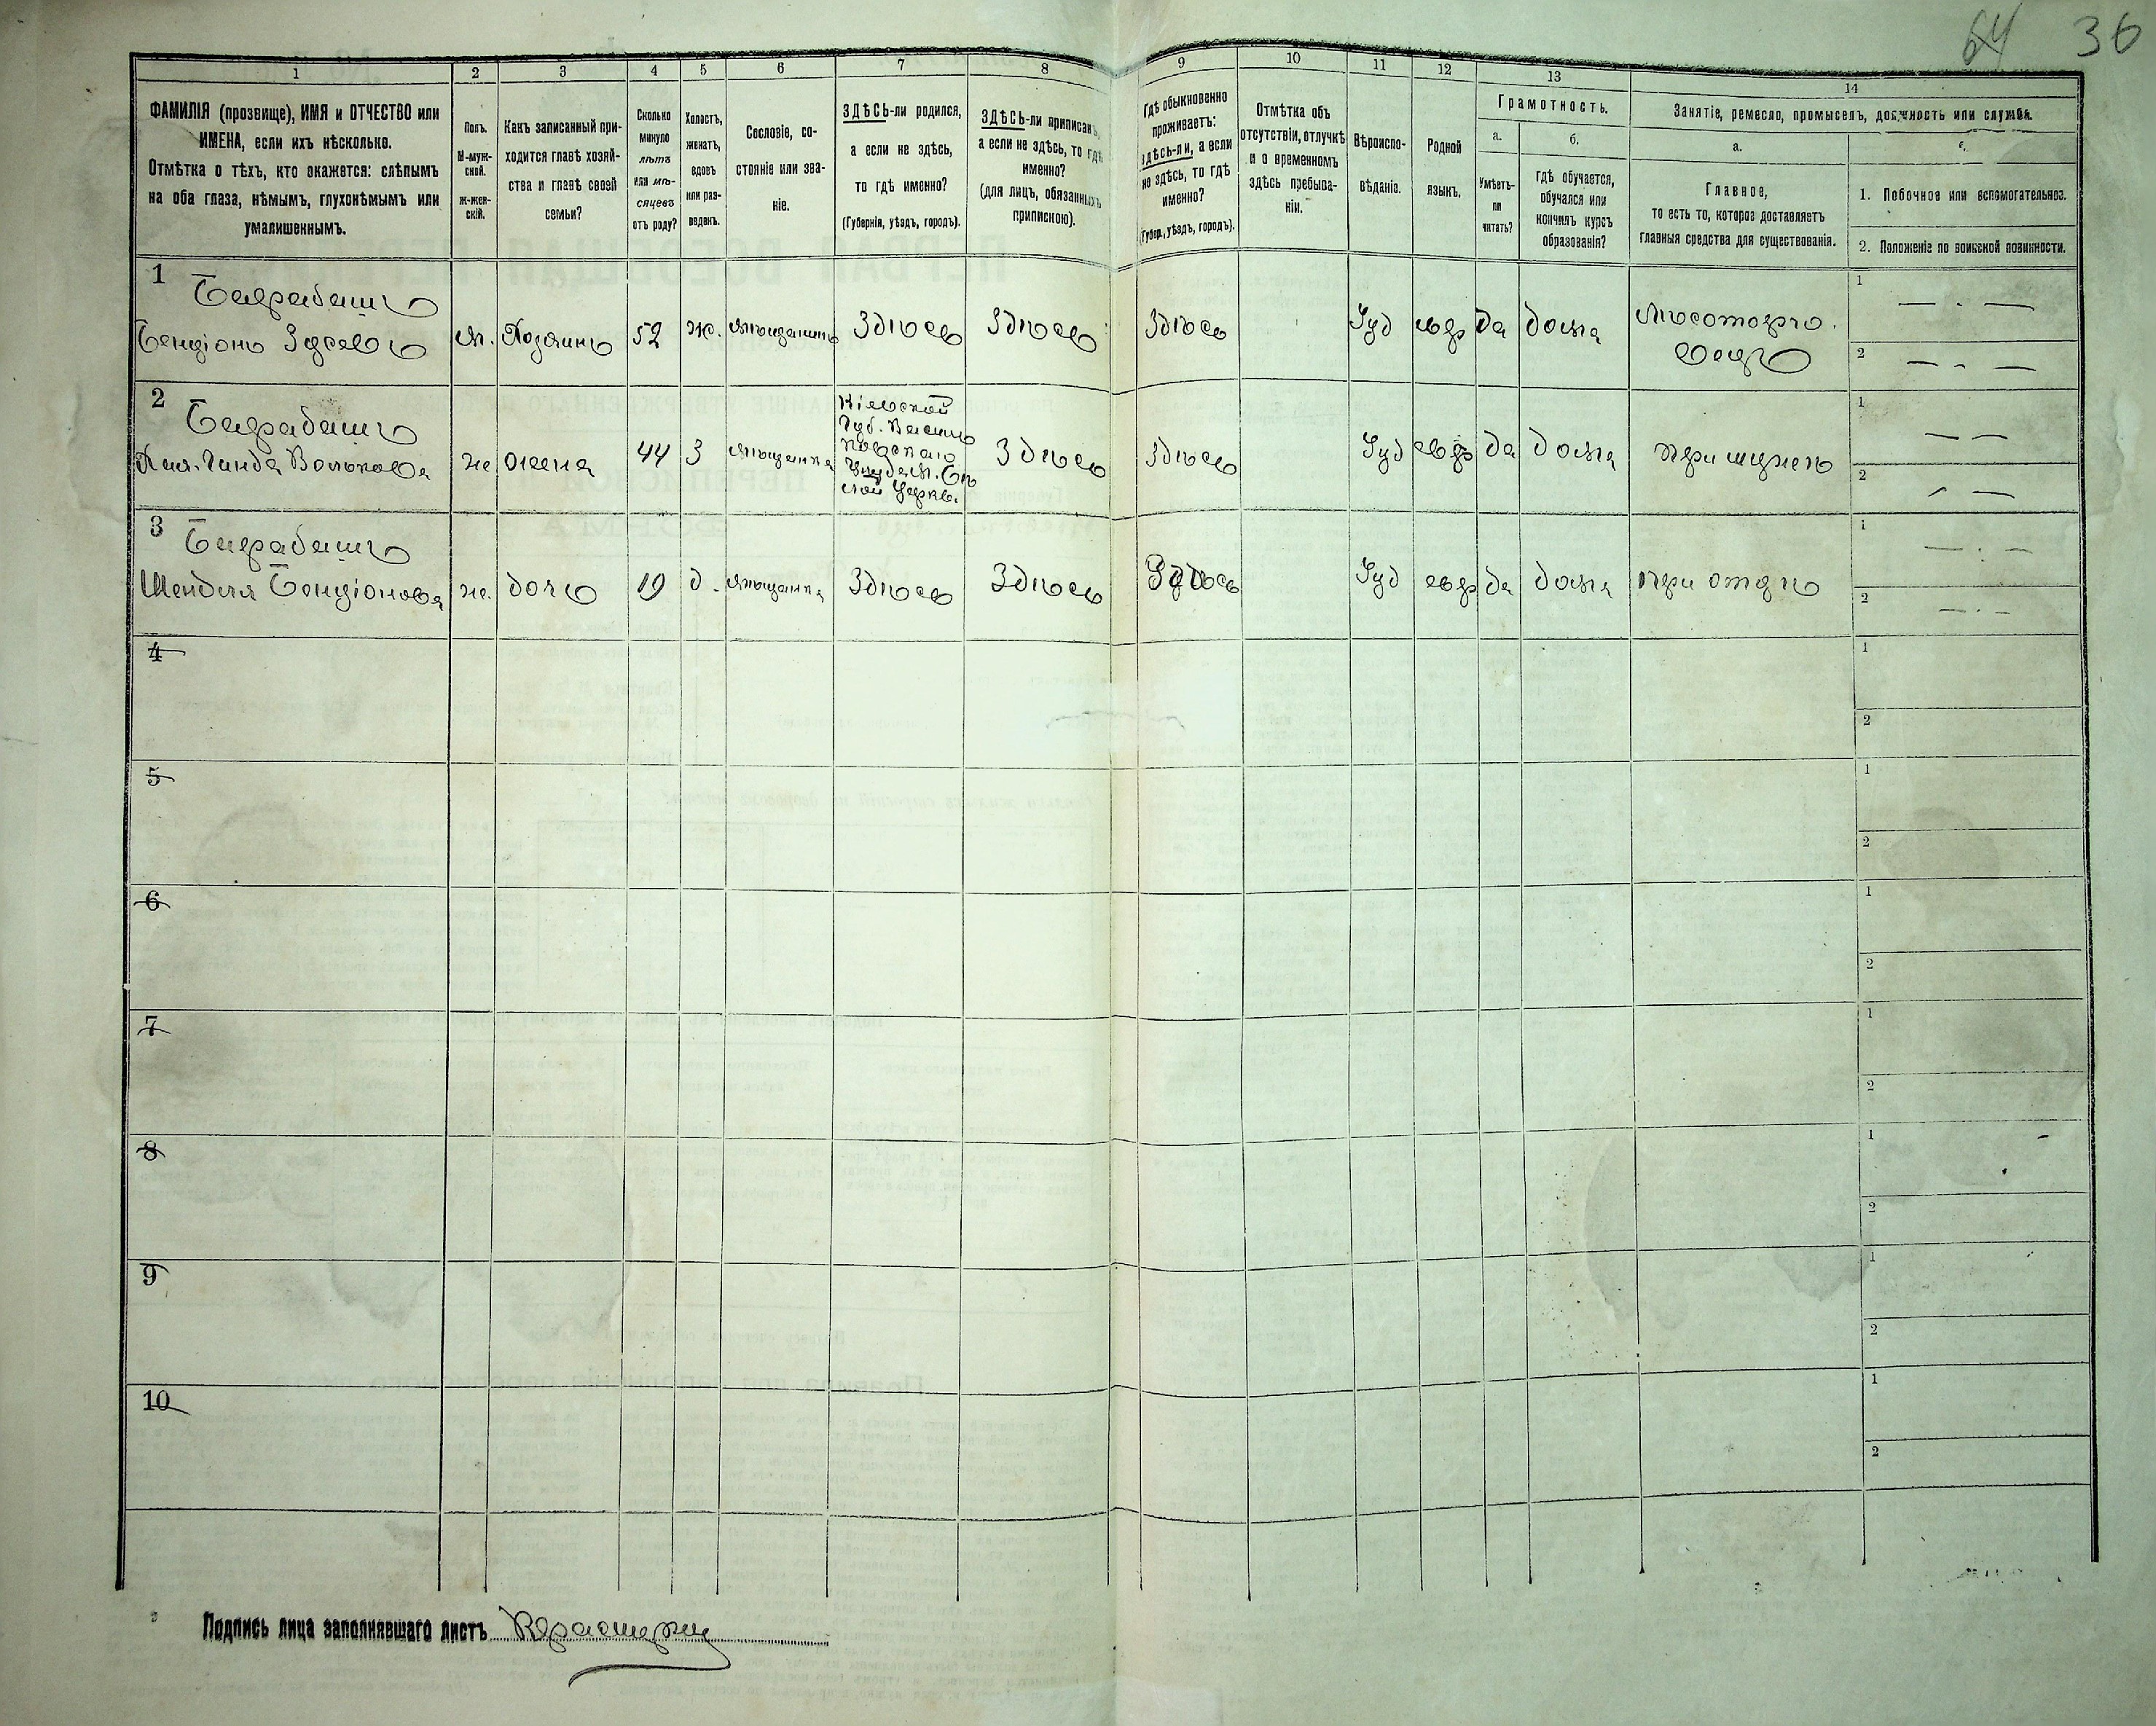 64 36
1 2 3 4 5 6 7 8 9 10 11 12 13 14
ФАМИЛІЯ (прозвище), ИМЯ и ОТЧЕСТВО или
ИМЕНА, если ихъ нѣсколько.
Отмѣтка о тѣхъ, кто окажется: слѣпымъ
на оба глаза, нѣмымъ, глухонѣмымъ или
умалишеннымъ.
Полъ.
М-муж-
ской.
ж-жен-
скій.
Какъ записанный при-
ходится главѣ хозяй-
ства и главѣ своей
семьи?
Сколько
минуло
лѣтъ
или мѣ-
сяцевъ
отъ роду?
Холостъ,
женатъ,
вдовъ
или раз-
веденъ.
Сословіе, со-
стояніе или зва-
ніе.
ЗДѢСЬ-ли родился,
а если не здѣсь,
то гдѣ именно?
(Губернія, уѣздъ, городъ).
ЗДѢСЬ-ли приписанъ,
а если не здѣсь, то гдѣ
именно?
(для лицъ, обязанныхъ
припискою).
Гдѣ обыкновенно
проживаетъ:
здѣсь-ли, а если
не здѣсь, то гдѣ
именно?
(Губер., уѣздъ, городъ).
Отмѣтка объ
отсутствіи, отлучкѣ
и о временномъ
здѣсь пребыва-
ніи.
Вѣроиспо-
вѣданіе.
Родной
языкъ.
Грамотность.
а. б.
Умѣетъ-
ли
читать?
гдѣ обучается,
обучался или
кончилъ курсъ
образованія?
Занятіе, ремесло, промыселъ, должность или служба.
а. б.
Главное,
то есть то, которое доставляетъ
главныя средства для существованія.
1. Побочное или вспомогательное.
2. Положеніе по воинской повинности.
1
Бенціонъ м. Хозяинъ 52 ж. мѣщанинъ Здѣсь Здѣсь Здѣсь Іуд евр да дома
1 — . —
2 — - —
2
Волькова же жена 44 З мѣщанка
Кіевской
Губ.
Церкв.
Здѣсь Здѣсь Іуд евр да дома при мужѣ
1 — —
2 — —
3
Шендля Бенціонова же. дочь 19 д. мѣщанка Здѣсь Здѣсь Здѣсь Іуд евр да дома при отцѣ
1 — . —
2 — . —
4
1
2
5
1
2
6
1
2
7
1
2
8
1
2
9
1
2
10
1
2
Подпись лица заполнявшаго листъ